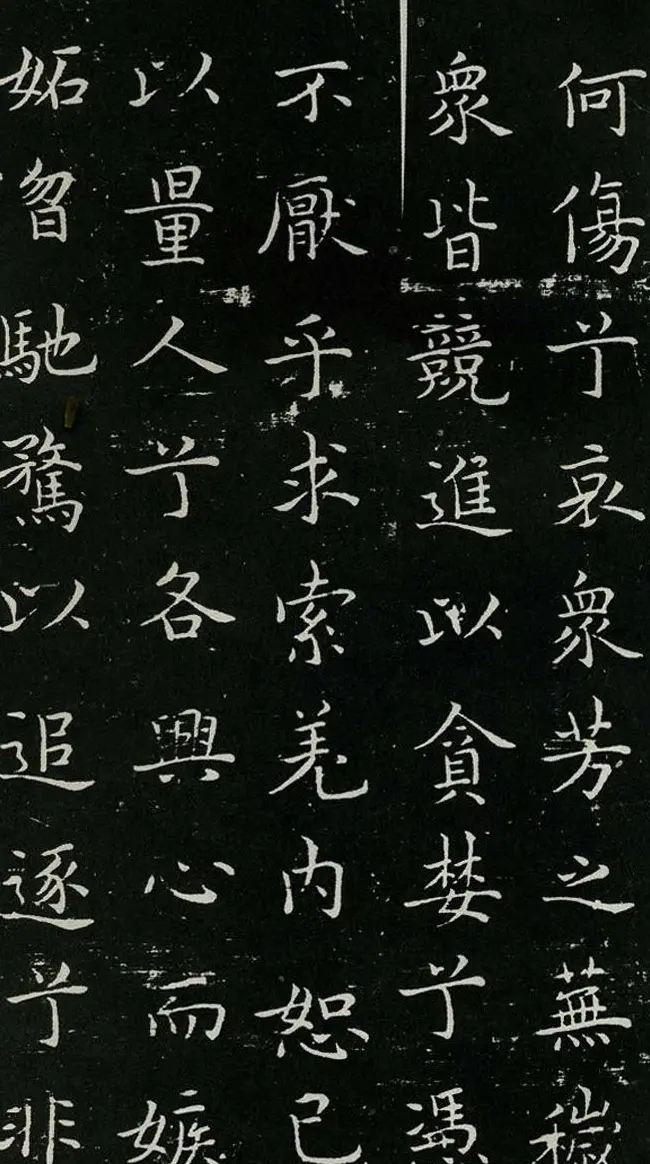 何傷兮哀衆芳之蕪穢
衆皆競進以貪婪兮憑
不厭乎求索羌内恕己
以量人兮各興心而嫉
妬曶馳騖以追逐兮非